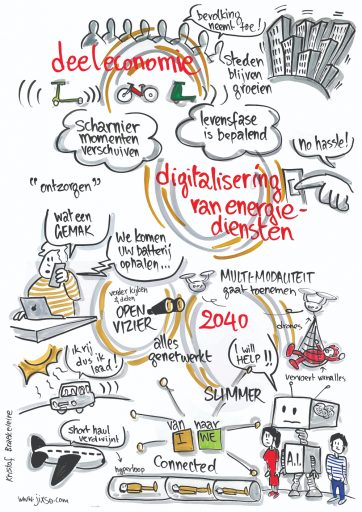 bevolking
neemt toe!
deeleconomie
Steden
blijven
groeien
Scharnier
momenten
verschuiven
levensfase
is bepalend
No hassle!
"ontzorgen"
digitalisering
van energie-
diensten
wat een
GEMAK
We komen
UW batterij
ophalen...
verder kijken
& delen
OPEN
VIZIER
MULTI-MODALITEIT
gaat toenemen
2040
drones
alles
genetwerkt
ik rij
dus ik
laad!
I will
HELP!!
vervoert van alles
SLIMMER
van naar
I WE
short haul
verdwijnt
Connected
A.I.
hyperloop
www.jixso.com